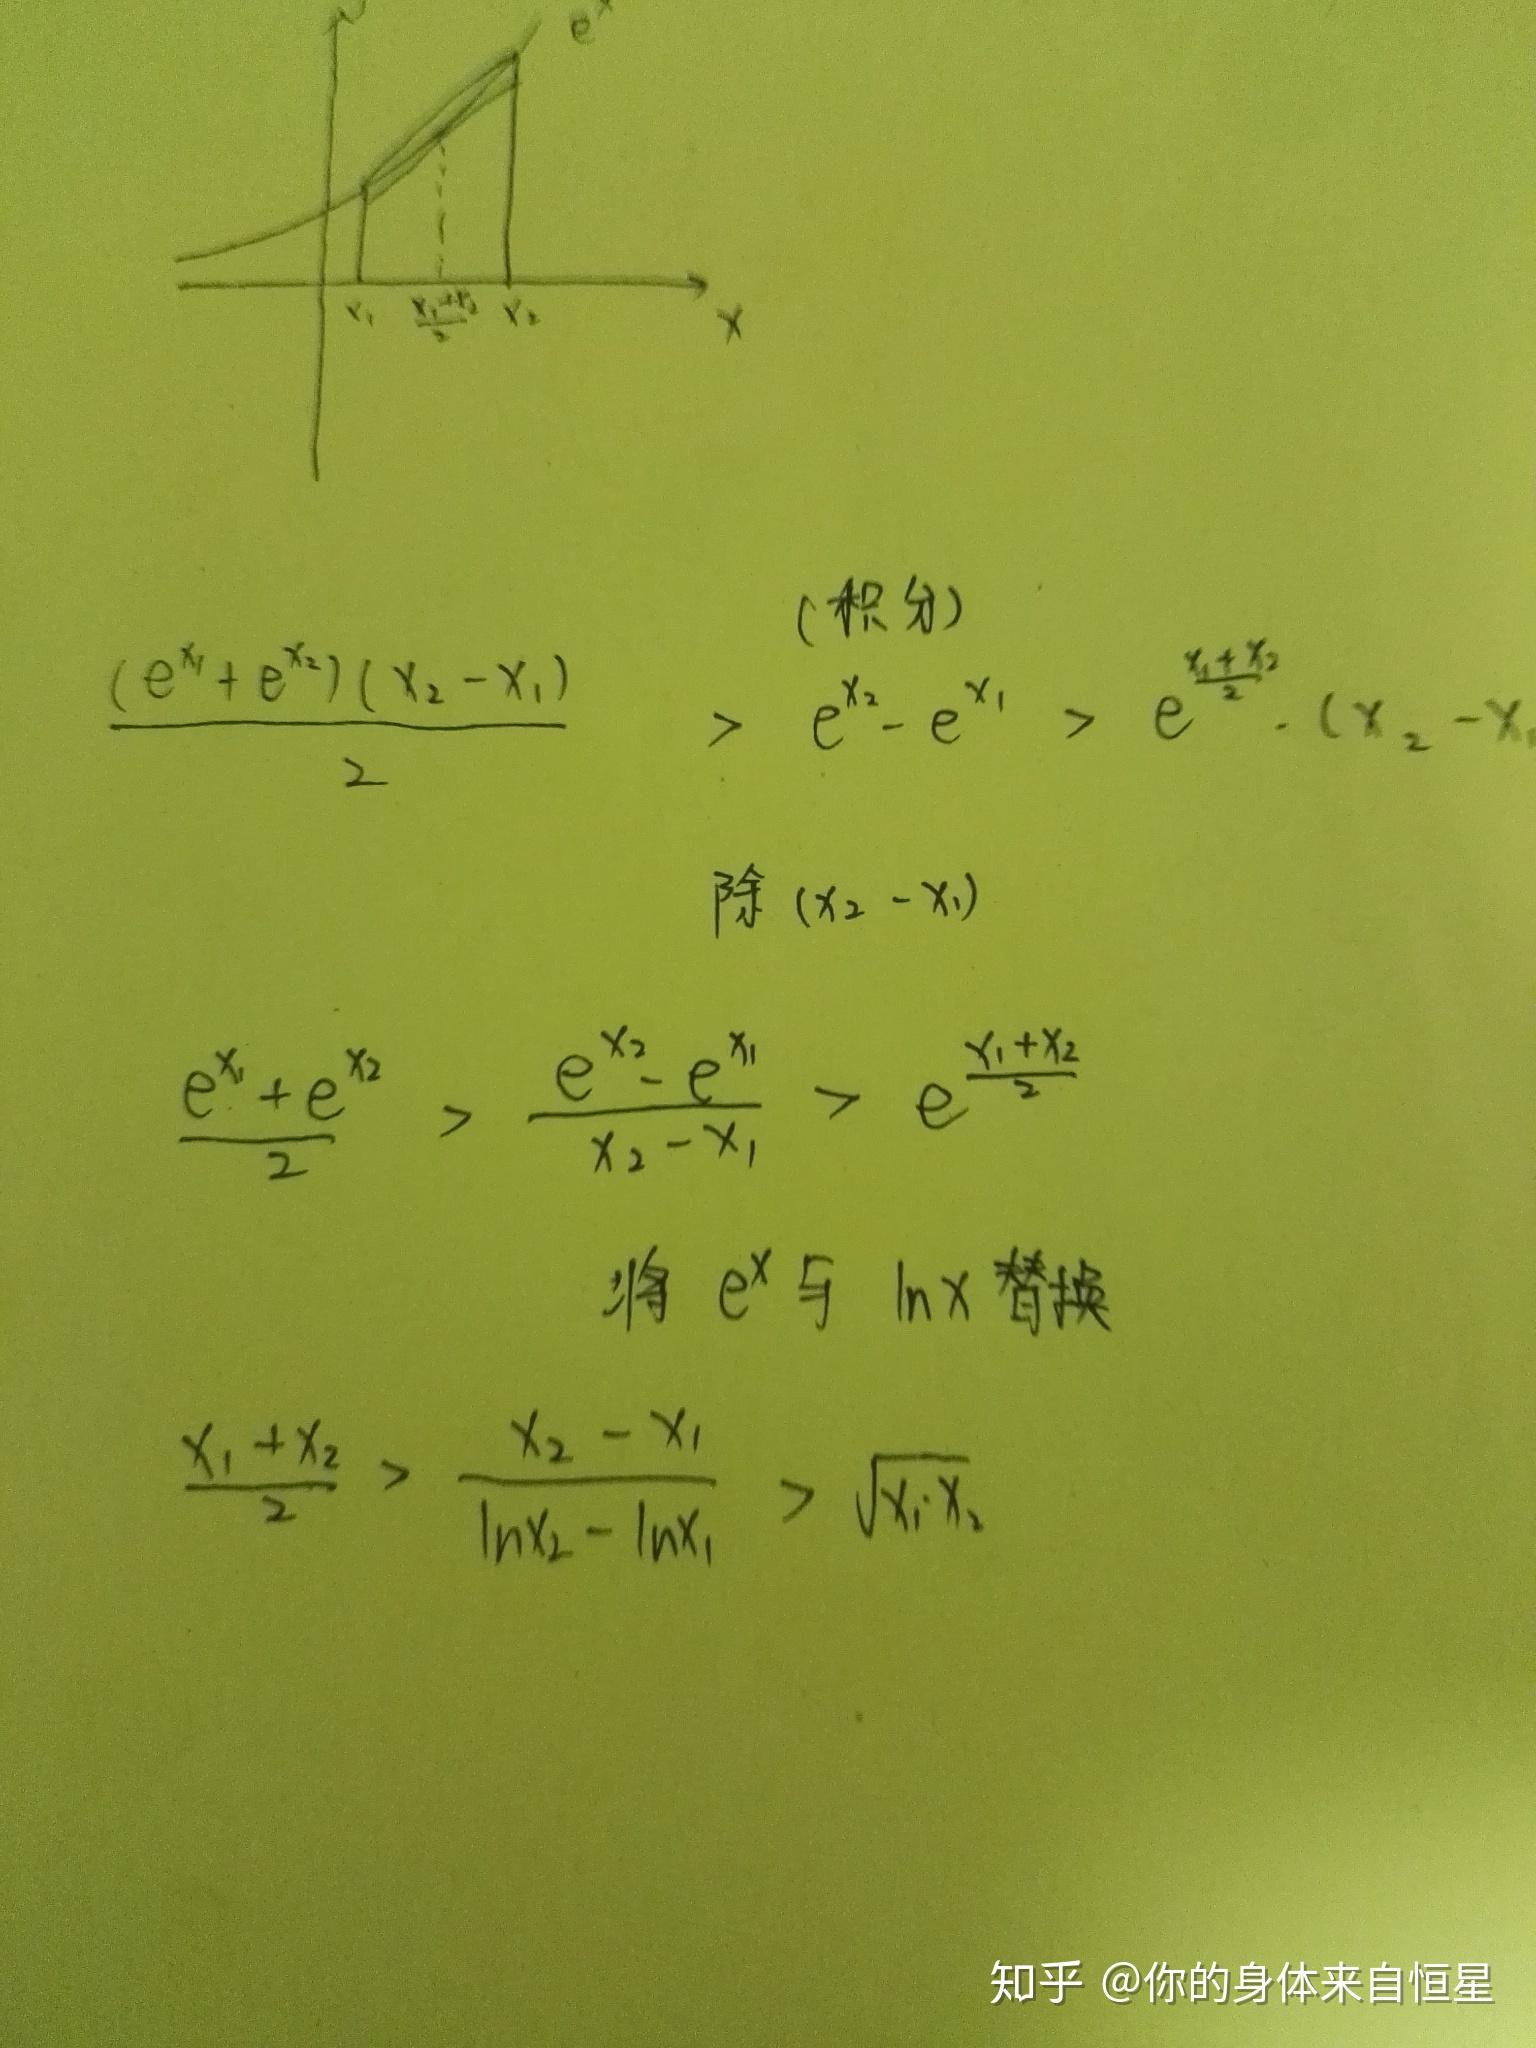 e^x
x₁ (x₁+x₂)/2 x₂ x
(积分)
(e^{x₁}+e^{x₂})(x₂-x₁)/2 > e^{x₂}-e^{x₁} > e^{(x₁+x₂)/2}·(x₂-x₁
除(x₂-x₁)
(e^{x₁}+e^{x₂})/2 > (e^{x₂}-e^{x₁})/(x₂-x₁) > e^{(x₁+x₂)/2}
将 e^x 与 lnx 替换
(x₁+x₂)/2 > (x₂-x₁)/(lnx₂-lnx₁) > √(x₁·x₂)
知乎 @你的身体来自恒星